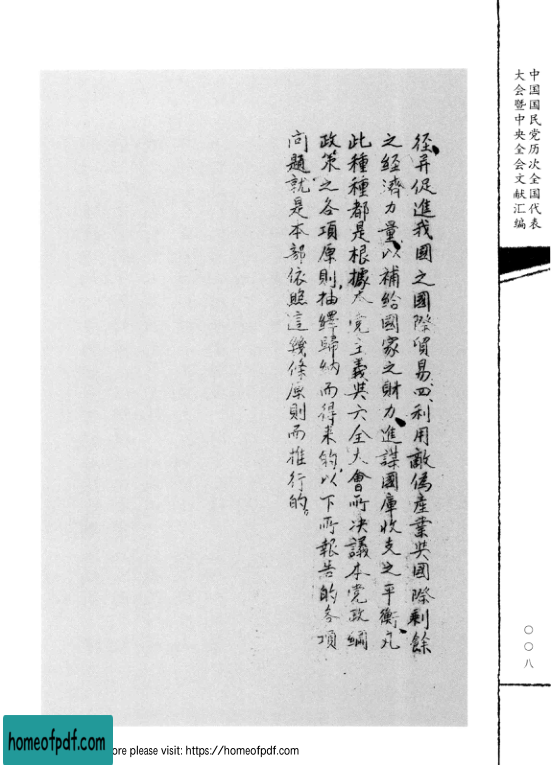 中国国民党历次全国代表
大会暨中央全会文献汇编
徑、并促進我國之國際貿易、四、利用敵偽產業與國際剩餘
之經濟力量、以補給國家之財力、進謀國庫收支之平衡、凡
此種種都是根據本党主義與六全大會所決議本党政綱
政策之各項原則、抽繹歸納而得来的、以下所報告的各項
问題就是本部依照這幾條原則而推行的。
〇〇八
homeofpdf.com
ore please visit: https://homeofpdf.com